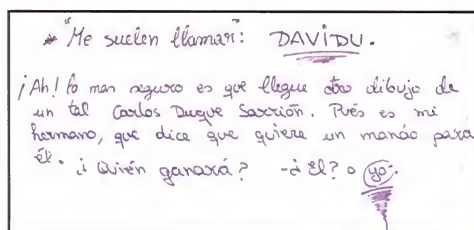 * "Me suelen llamar": DAVIDU.
¡Ah! lo mas seguro es que llegue otro dibujo de
un tal Carlos Duque Sarrión. Pués es mi
hermano, que dice que quiere un mando para
él. ¿¡ Quién ganará? -¿ Él? o yo.